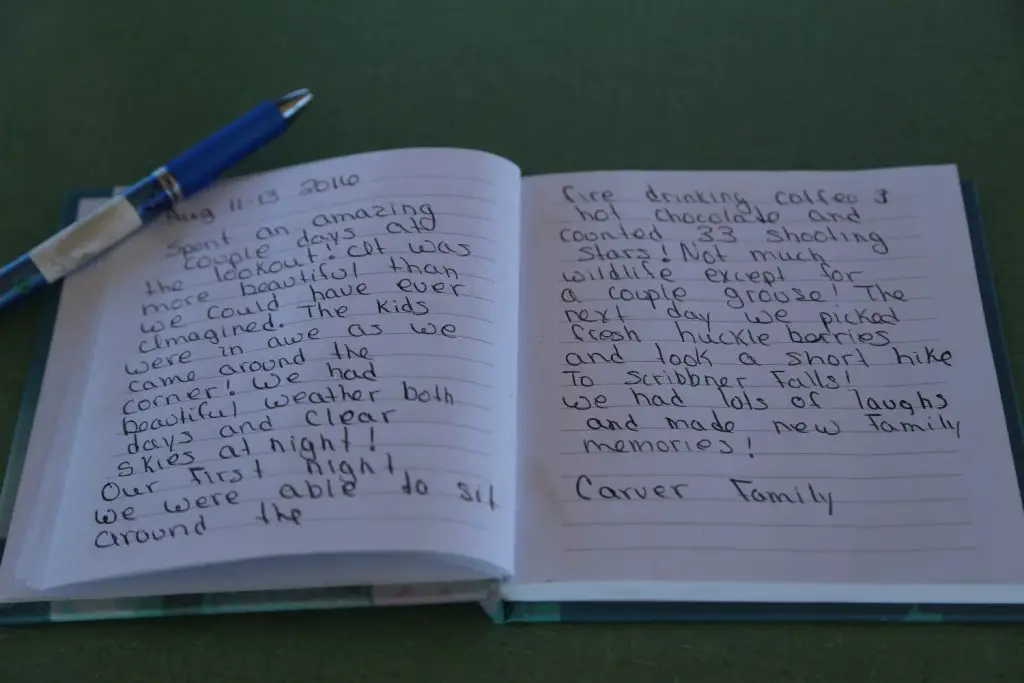 Aug 11-13 2016
Spent an amazing
couple days at
the lookout. It was
more beautiful than
we could have ever
imagined. The kids
were in awe as we
came around the
corner! We had
beautiful weather both
days and clear
skies at night!
Our first night
we were able to sit
around the
fire drinking coffee &
hot chocolate and
counted 33 shooting
stars! Not much
wildlife except for
a couple grouse! The
next day we picked
fresh huckle berries
and took a short hike
To Scribbner Falls!
we had lots of laughs
and made new family
memories!
Carver Family